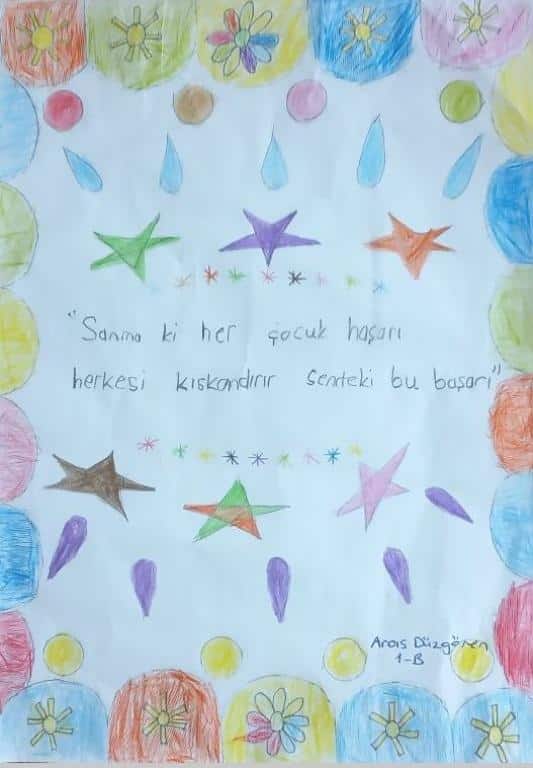 "Sanma ki her çocuk haşarı
herkesi kıskandırır sendeki bu başarı"
Aras Düzgören
1-B